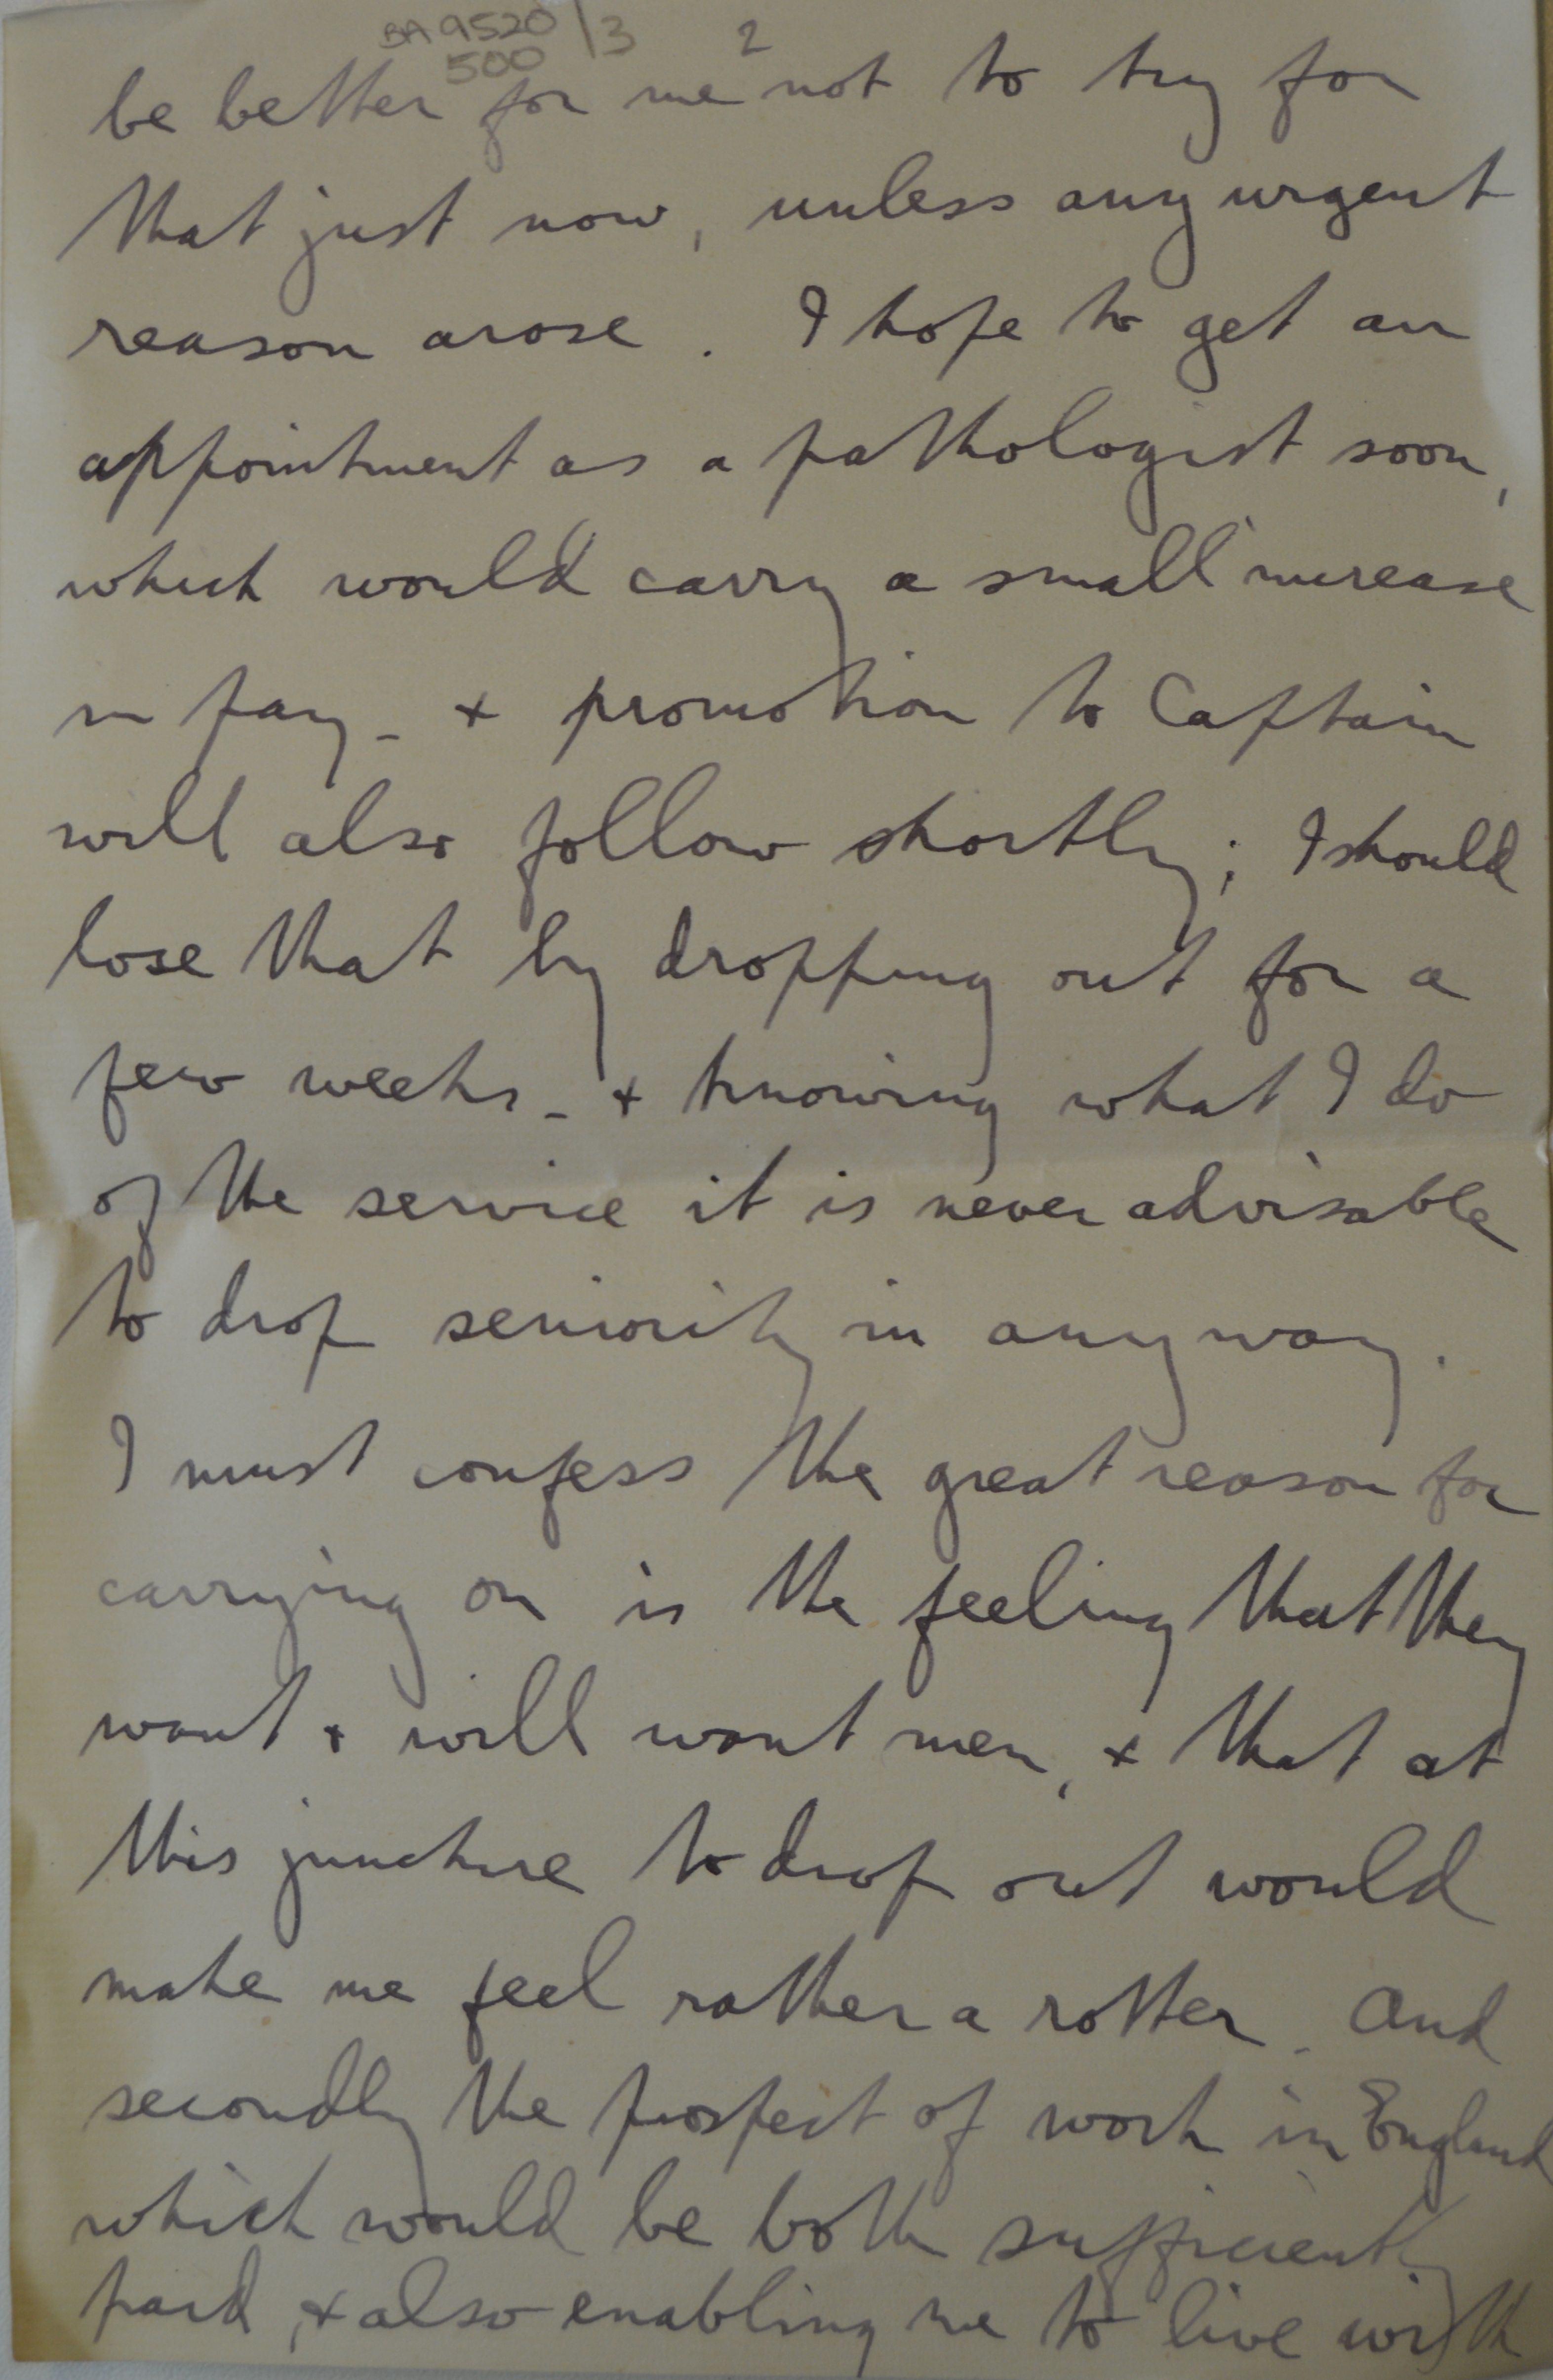 BA 9520/3
500
2
be better for me not to try for
that just now, unless any urgent
reason arose. I hope to get an
appointment as a pathologist soon,
which would carry a small increase
in pay - + promotion to Captain
will also follow shortly; I should
lose that by dropping out for a
few weeks - + knowing what I do
of the service it is never advisable
to drop seniority in anyway.
I must confess the great reason for
carrying on is the feeling that they
want + will want men, + that at
this juncture to drop out would
make me feel rather a rotter. And
secondly the prospect of work in England
which would be both sufficiently
paid, + also enabling me to live with